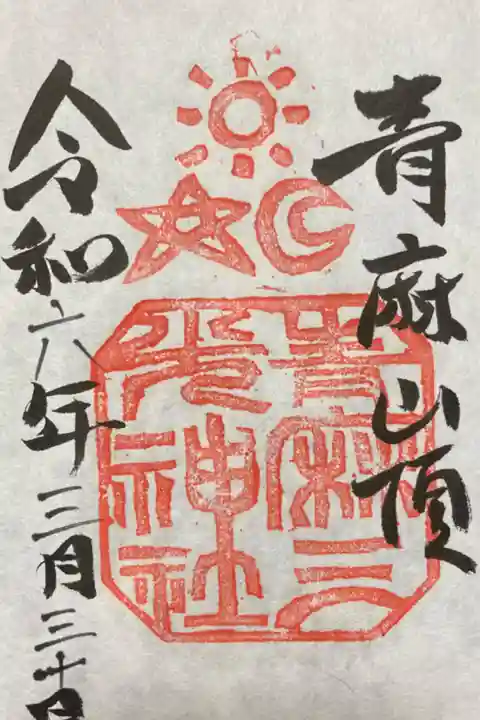 青麻山頂
青麻三光神社
令和六年三月三十日